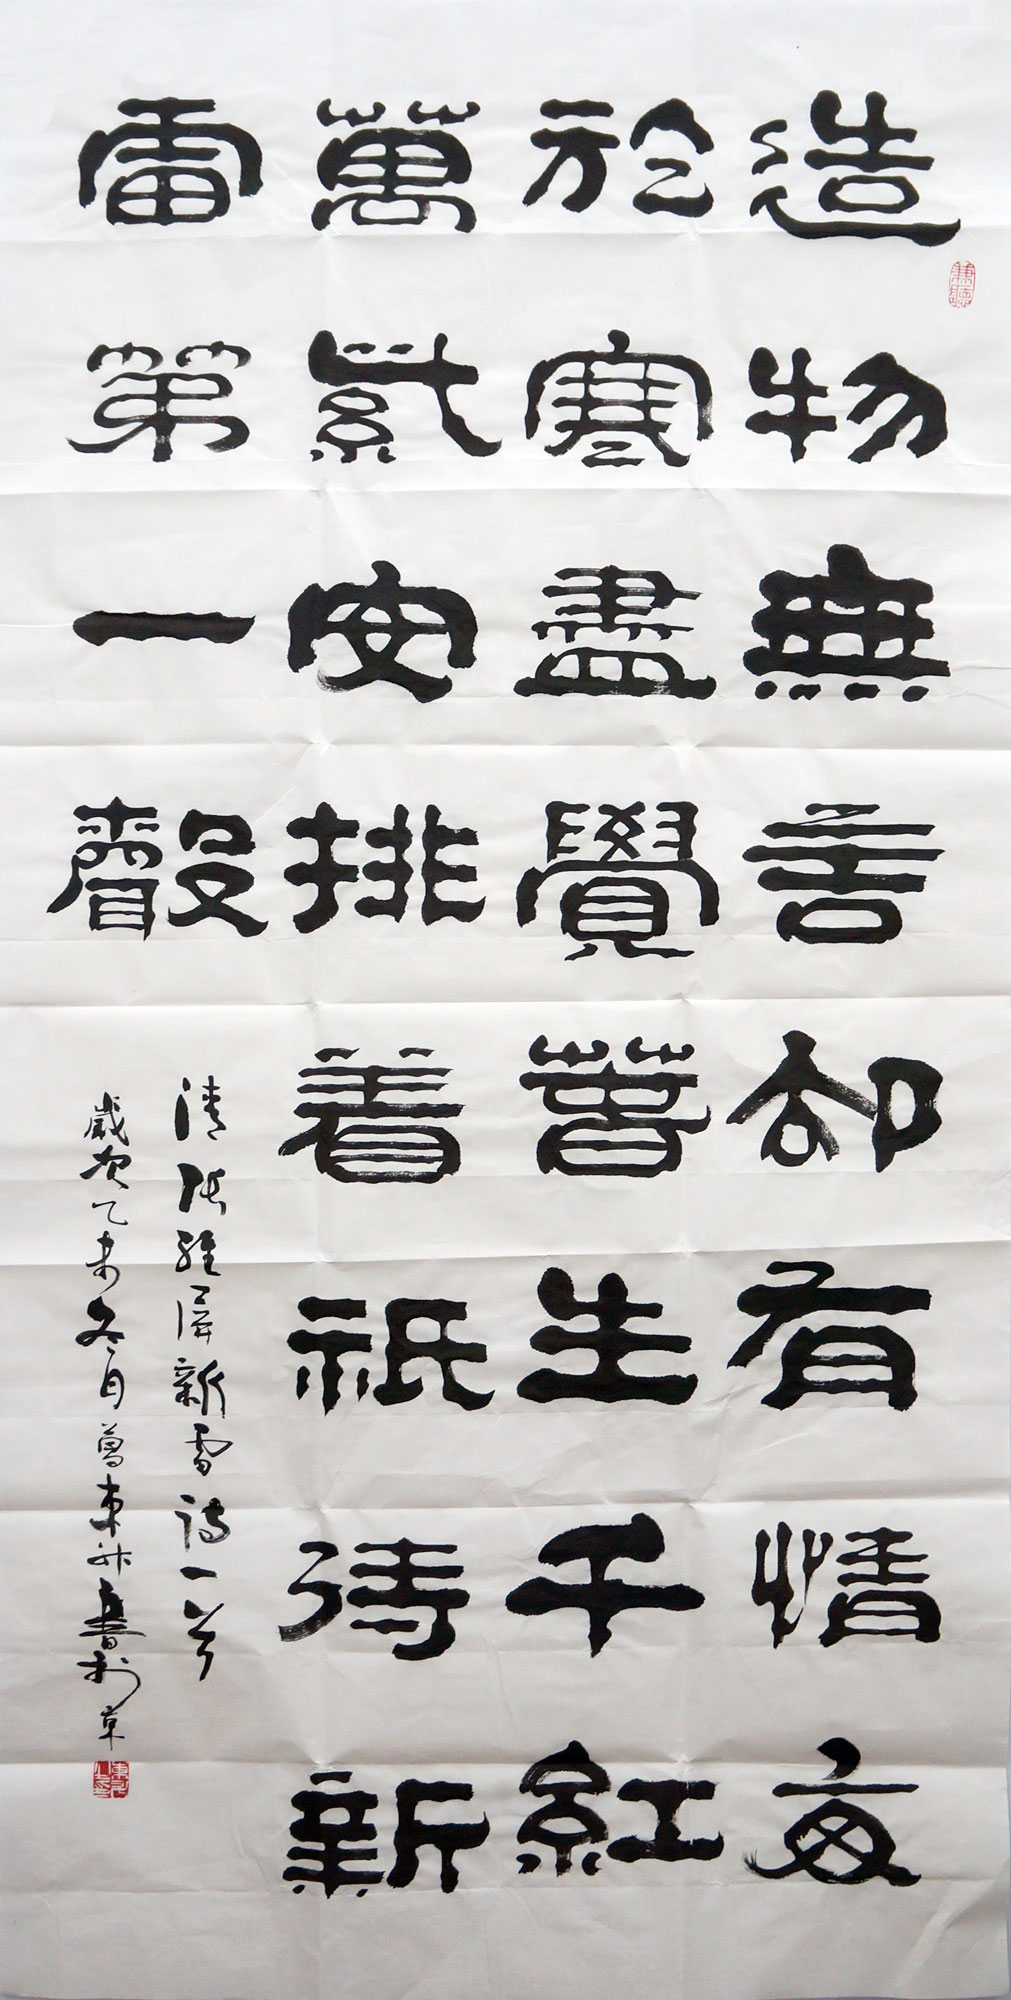 造物無言却有情每
於寒盡覺春生千紅
萬紫安排着祇待新
雷第一聲
清張維屏新雷詩一首
歲次乙未冬月葛東升書於京